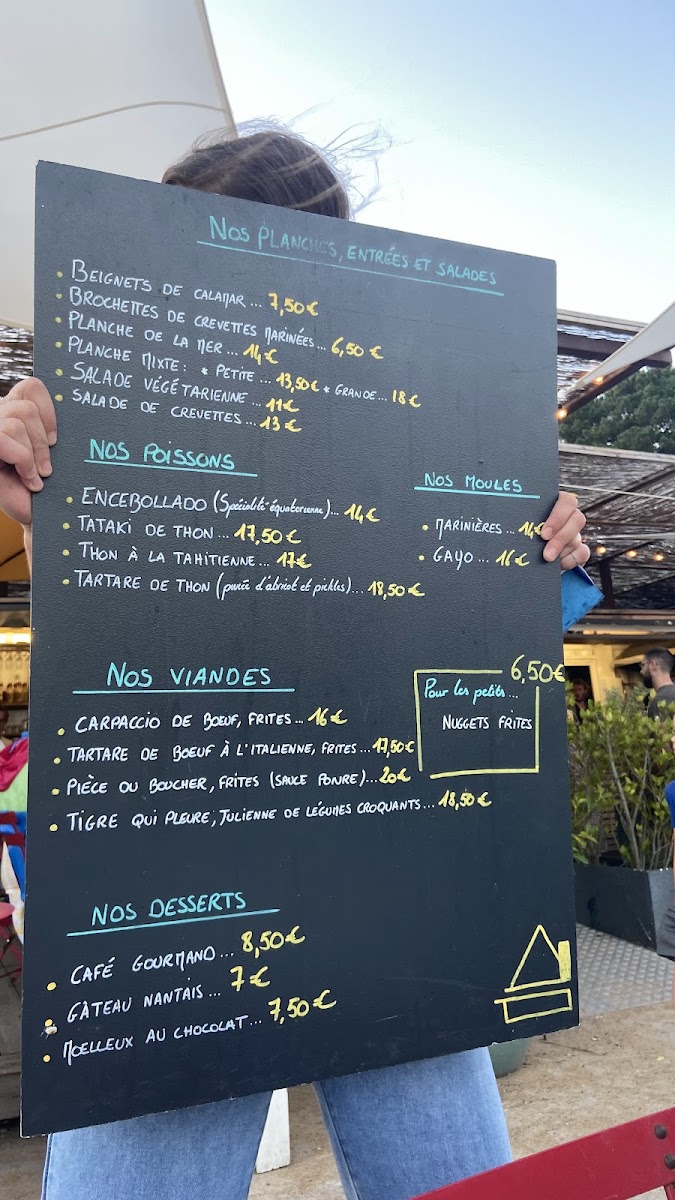 NOS PLANCHES, ENTRÉES ET SALADES
• BEIGNETS DE CALAMAR ... 7,50 €
• BROCHETTES DE CREVETTES MARINÉES ... 6,50 €
• PLANCHE DE LA MER ... 14 €
• PLANCHE MIXTE : * PETITE ... 13,50 € * GRANDE ... 18 €
• SALADE VÉGÉTARIENNE ... 11 €
• SALADE DE CREVETTES ... 13 €
NOS POISSONS
• ENCEBOLLADO (Spécialité équatorienne) ... 14 €
• TATAKI DE THON ... 17,50 €
• THON À LA TAHITIENNE ... 17 €
• TARTARE DE THON (purée d'abricot et pickles) ... 18,50 €
NOS MOULES
• MARINIÈRES ... 14 €
• GAYO ... 16 €
NOS VIANDES
• CARPACCIO DE BOEUF, FRITES ... 16 €
• TARTARE DE BOEUF À L'ITALIENNE, FRITES ... 17,50 €
• PIÈCE DU BOUCHER, FRITES (SAUCE POIVRE) ... 20 €
• TIGRE QUI PLEURE, JULIENNE DE LÉGUMES CROQUANTS ... 18,50 €
6,50 €
Pour les petits ...
NUGGETS FRITES
NOS DESSERTS
• CAFÉ GOURMAND ... 8,50 €
• GÂTEAU NANTAIS ... 7 €
• MOELLEUX AU CHOCOLAT ... 7,50 €